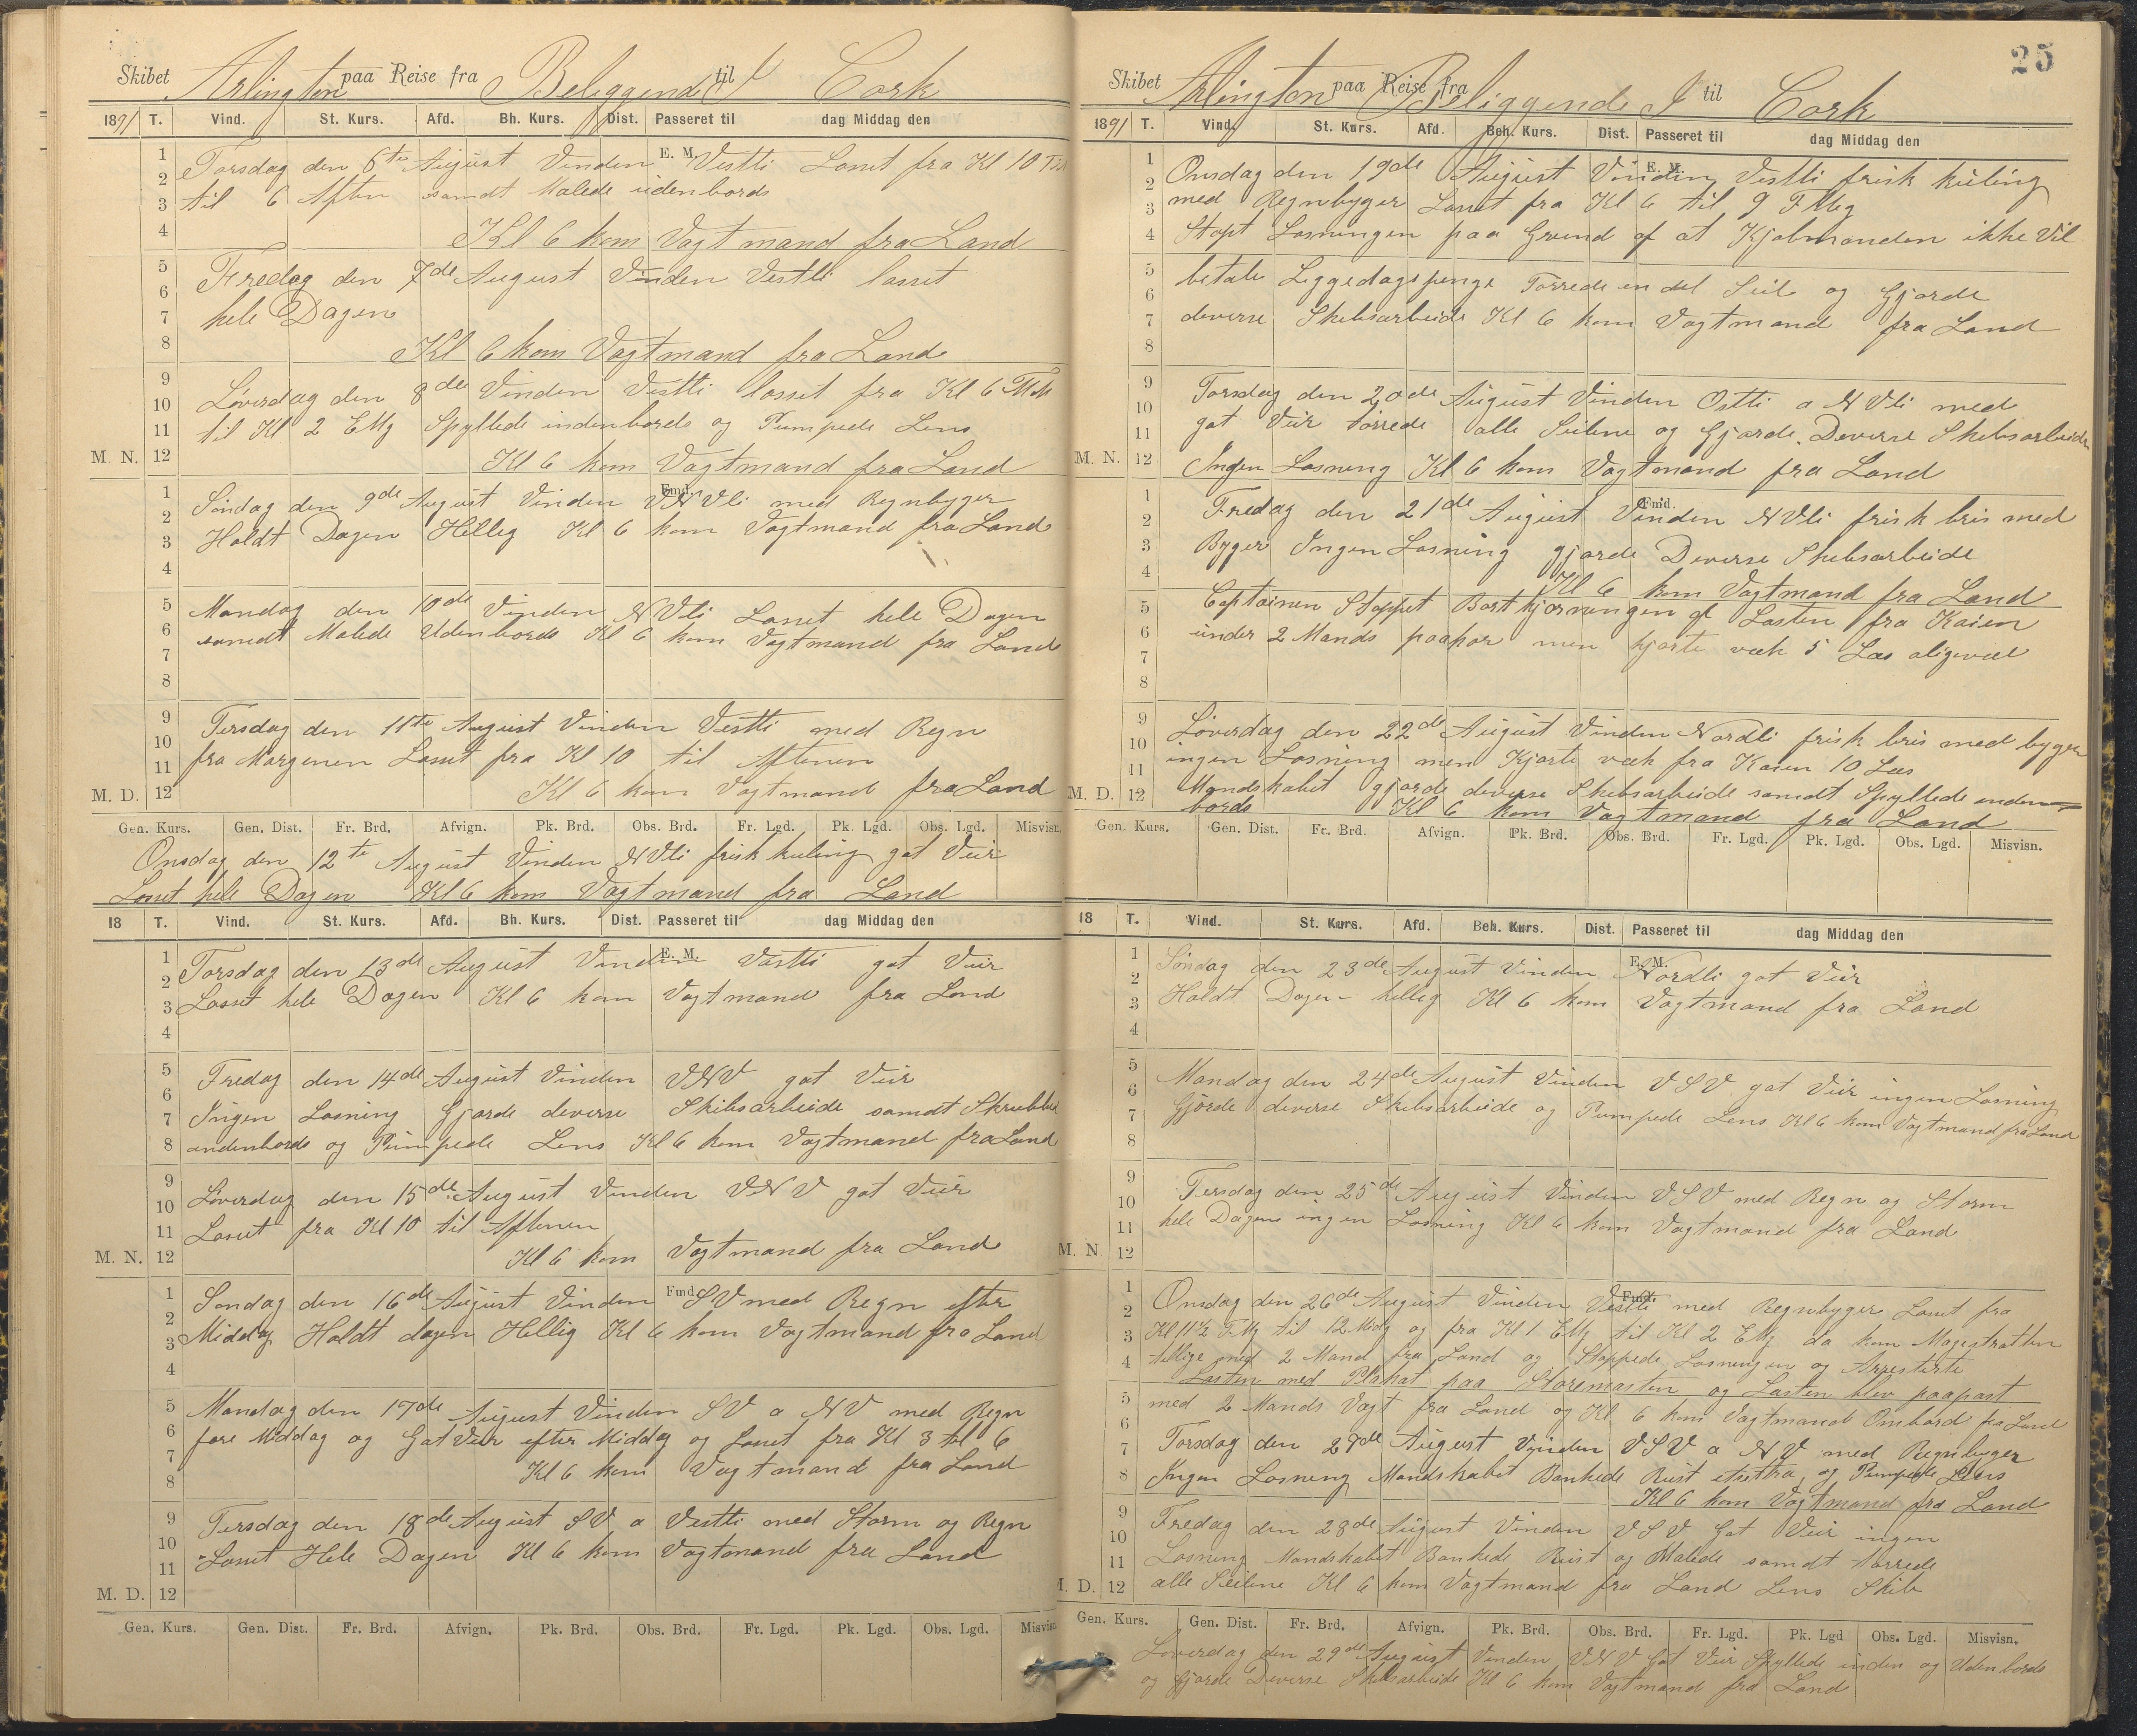 Skibet Arlington paa Reise fra Beliggende I til Cork
1891 T. Vind. St. Kurs. Afd. Bh. Kurs. Dist. Passeret til dag Middag den
E. M.
Torsdag den 6te August Vinden Vestli Losset fra Kl 10
til 6 Aften samdt Malede udenbords
Kl 6 kom Vagtmand fra Land
Fredag den 7de August Vinden Vestli losset
hele Dagen
Kl 6 kom Vagtmand fra Land
Löverdag den 8de Vinden Vestli losset fra Kl 6
til Kl 2 EMg Spyllede indenbords og Pumpede Lens
M. N.
Kl 6 kom Vagtmand fra Land
Fmd.
Söndag den 9de August Vinden VNVli med Regnbyger
Holdt Dagen Hellig Kl 6 kom Vagtmand fra Land
Mandag den 10de Vinden NVli Losset hele Dagen
samdt Malede Udenbords Kl 6 kom Vagtmand fra Land
Tirsdag den 11te August Vinden Vestli med Regn
fra Morgenen Losset fra Kl 10 til Aftenen
M. D.
Kl 6 kom Vagtmand fra Land
Gen. Kurs. Gen. Dist. Fr. Brd. Afvign. Pk. Brd. Obs. Brd. Fr. Lgd. Pk. Lgd. Obs. Lgd. Misvisn.
Onsdag den 12te August Vinden NVli frisk kuling gat Veir
Losset hele Dagen Kl 6 kom Vagtmand fra Land
18 T. Vind. St. Kurs. Afd. Bh. Kurs. Dist. Passeret til dag Middag den
E. M.
Torsdag den 13de August Vinden Vastli gat Veir
Losset hele Dagen Kl 6 kom Vagtmand fra Land
Fredag den 14de August Vinden VNV gat Veir
Ingen Losning Gjorde deverse Skibsarbeide samdt Skrubbed
andenbords og Pumpede Lens Kl 6 kom Vagtmand fra Land
Löverdag den 15de August Vinden VNV gat Veir
Losset fra Kl 10 til Aftenen
M. N.
Kl 6 kom Vagtmand fra Land
Fmd.
Sondag den 16de August Vinden SV med Regn efter
Middag Holdt dagen Hellig Kl 6 kom Vagtmand fra Land
Mandag den 17de August Vinden SV a NV med Regn
fore Middag og Gat Veir efter Middag og Losset fra Kl 3 til 6
Kl 6 kom Vagtmand fra Land
Tirsdag den 18de August SV a Vestli med Storm og Regn
Losset Hele Dagen Kl 6 kom Vagtmand fra Land
M. D.
Gen. Kurs. Gen. Dist. Fr. Brd. Afvign. Pk. Brd. Obs. Brd. Fr. Lgd. Pk. Lgd. Obs. Lgd. Misvisn
25
Skibet Arlington paa Reise fra Beliggende I til Cork
1891 T. Vind. St. Kurs. Afd. Beh. Kurs. Dist. Passeret til dag Middag den
E. M.
Onsdag den 19de August Vinden Vestli frisk kuling
med Regnbyger Losset fra Kl 6 til 9 FMg
Stopt Losningen paa Grund af at Kjobmanden ikke Vil
betale Liggedagspenge Torrede en del Seil og Gjorde
deverse Skibsarbeide Kl 6 kom Vagtmand fra Land
Torsdag den 20de August Vinden Ostli a NVli med
gat Veir torrede alle Seilene og Gjorde Deverse Skibsarbeide
M. N.
Ingen Losning Kl 6 kom Vagtmand fra Land
Fmd.
Fredag den 21de August Vinden NVli frisk bris med
Byger Ingen Losning gjorde Deverse Skibsarbeide
Kl 6 kom Vagtmand fra Land
Captainen Stoppet Bortkjorningen af Lasten fra Kaien
under 2 Mands paapas men kjorte væk 5 Læs aligevæl
Löverdag den 22de August Vinden Nordli frisk bris med byger
ingen Losning men Kjorte væk fra Kaien 10 Læs
M. D.
Mandskabet gjorde deverse Skibsarbeide samdt Spyllede inden
bords Kl 6 kom Vagtmand fra Land
Gen. Kurs. Gen. Dist. Fr. Brd. Afvign. Pk. Brd. Obs. Brd. Fr. Lgd. Pk. Lgd. Obs. Lgd. Misvisn.
18 T. Vind. St. Kurs. Afd. Beh. Kurs. Dist. Passeret til dag Middag den
E. M.
Söndag den 23de August Vinden Nordli gat Veir
Holdt Dagen hellig Kl 6 kom Vagtmand fra Land
Mandag den 24de August Vinden VSV gat Veir ingen Losning
Gjorde deverse Skibsarbeide og Pumpede Lens Kl 6 kom Vagtmand fra Land
Tirsdag den 25de August Vinden VSV med Regn og Storm
hele Dagen ingen Losning Kl 6 kom Vagtmand fra Land
M. N.
Fmd.
Onsdag den 26de August Vinden Vestli med Regnbyger Losset fra
Kl 11½ FMg til 12 Midg og fra Kl 1 EMg til Kl 2 EMg da kom Magestratten
tillige med 2 Mand fra Land og Stoppede Losningen og Arresterte
Lasten med Plakat paa Storemasten og Lasten blev paapast
med 2 Mands Vagt fra Land og Kl 6 kom Vagtmand Ombord fra Land
Torsdag den 27de August Vinden VSV a NV med Regnbyger
Ingen Losning Mandskabet Bankede Rust etsettra og Pumpede Lens
Kl 6 kom Vagtmand fra Land
Fredag den 28de August Vinden VSV Gat Veir ingen
Losning Mandskabet Bankede Rust og Malede samdt torrede
M. D.
alle Seilene Kl 6 kom Vagtmand fra Land Lens Skib
Gen. Kurs. Gen. Dist. Fr. Brd. Afvign. Pk. Brd. Obs. Brd. Fr. Lgd. Pk. Lgd Obs. Lgd. Misvisn.
Loverdag den 29de August Vinden VNV Gat Veir Spyllede inden og Udenbords
og Gjorde Deverse Skibsarbeide Kl 6 kom Vagtmand fra Land